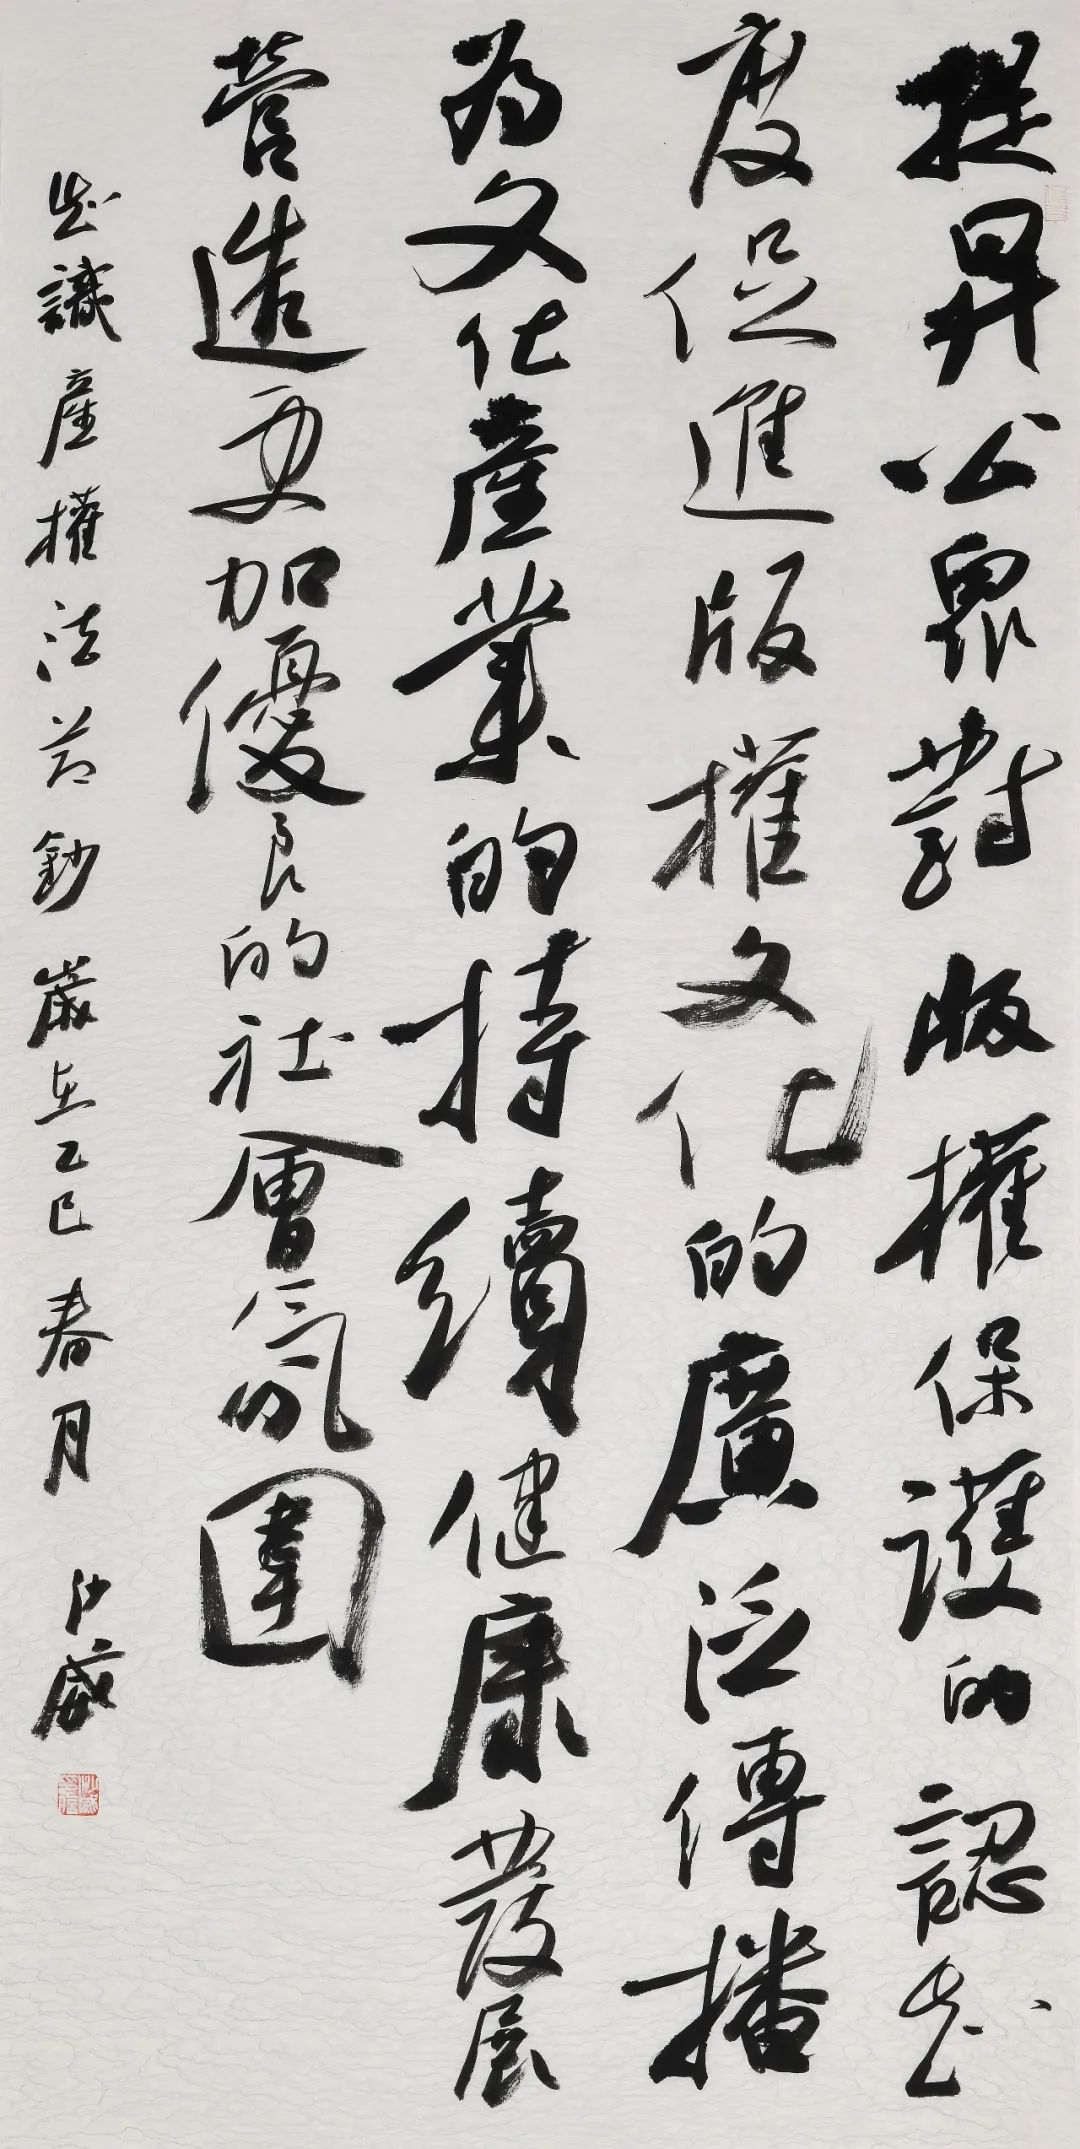 提昇公眾對版權保護的認知
度促進版權文化的廣泛傳播
為文化產業的持續健康發展
營造更加優良的社會氛圍
知識產權法節鈔歲在乙巳春月沙威